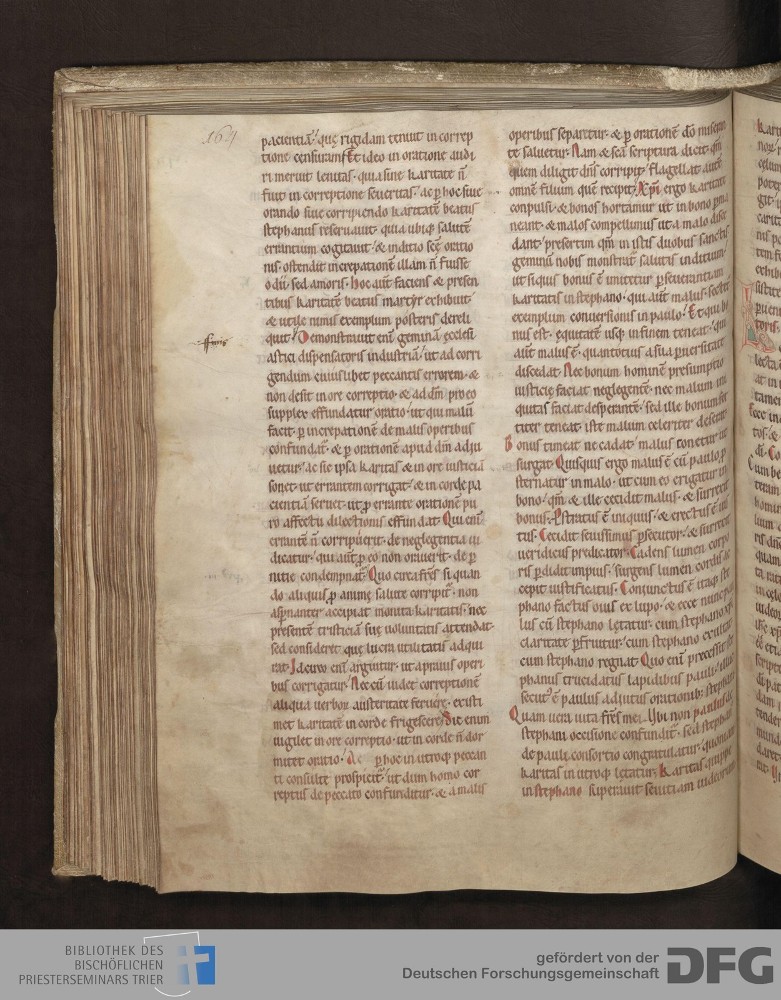 164
pacientiā, que rigidam tenuit in correp
tione censuram. Et ideo in oratione audi
ri meruit lenitas, quia sine karitate ñ
fuit in correptione seueritas, ac p hoc siue
orando siue corripiendo karitatē beatus
stephanus reseruauit, quia ubiq; salutē
errantium cogitauit, & inditio sce oratio
nis, ostendit increpationē illam ñ fuisse
odii, sed amoris. hoc aut faciens & presen
tibus karitatē beatus martyr exhibuit,
& utile nimis exemplum posteris dereli
quit. Demonstrauit eni geminā ecclesi
astici dispensatoris industriā, ut ad corri
gendum cuiuslibet peccantis errorem, &
non desit in ore correptio, & ad dm pro eo
supplex effundatur oratio, ut qui malū
facit, p increpationē de malis operibus
confundat, & p orationē apud dm adiu
uetur, ac sic ipsa karitas & in ore iusticiā
sonet, ut errantem corrigat, & in corde pa
cientiā seruet, ut p errante orationē pu
ro affectu dilectionis effundat. Qui eni
errantē ñ corripuerit, de neglegentia iu
dicatur, qui aut p eo non orauerit, de p
nitie condempnat. Quo circa frēs si quan
do aliquis p anime salute corripit, non
aspnanter accipiat monita karitatis, nec
presentē tristiciā sue uoluntatis attendat,
sed consideret que lucra utilitatis adqui
rat. Ideirco eni arguitur, ut a prauis operi
bus corrigatur. Nec cū uidet correptionē
aliqua uerbor austeritate feruere, existi
met karitatē in corde frigescere. Sic enim
uigilet in ore correptio, ut in corde ñ dor
mitet oratio. Ac p hoc in utroq; peccan
ti consulte prospicit, ut dum homo cor
reptus de peccato confunditur, & a malis
operibus separetur, & p orationē dō miseran
te saluetur. Nam & sca scriptura dicit, qm
quem diligit dns corripit, flagellat autē
omnē filium quē recipit. Xpi ergo karitate
conpulsi, & bonos hortamur ut in bono pma
neant, & malos compellimus ut a malo disce
dant, presertim qm in istis duobus sanctis
geminū nobis monstrat salutis inditium,
ut siquis bonus ē imitetur pseuerantiam
karitatis in stephano, qui aut malus, sectet
exemplum conuersionis in paulo. Et qui bo
nus est, equitatē usq; in finem teneat, qui
aut malus ē, quantotius a sua puersitate
discedat. Nec bonum hominē presumptio
iusticie faciat neglegentē, nec malum ini
quitas faciat desperantē, sed ille bonum for
titer teneat, iste malum celeriter deserat.
Bonus timeat ne cadat, malus conetur ut
surgat. Quisquis ergo malus ē cū paulo p
sternatur in malo, ut cum eo erigatur in
bono, qm & ille cecidit malus, & surrexit
bonus. Pstratus ē iniquus, & erectus ē ius
tus. Cecidit seuissimus psecutor, & surrexit
ueridicus predicator. Cadens lumen corpo
ris pdidit impius, surgens lumen cordis ac
cepit iustificatus. Coniunctus ē itaq; ste
phano factus ouis ex lupo, & ecce nunc pau
lus cū stephano letatur, cum stephano xpi
claritate pfruitur, cum stephano exultat
cum stephano regnat. Quo eni precessit ste
phanus trucidatus lapidibus pauli, illuc
secut' ē paulus adiutus orationib; stephani.
Quam uera uita frēs mei. Ubi non paulus de
stephani occisione confundit, sed stephan'
de pauli consortio congratulatur, quoniam
karitas in utroq; letatur. Karitas quippe
in stephano superauit seuitiam iudeorum
BIBLIOTHEK DES
BISCHÖFLICHEN
PRIESTERSEMINARS TRIER
gefördert von der
Deutschen Forschungsgemeinschaft
DFG